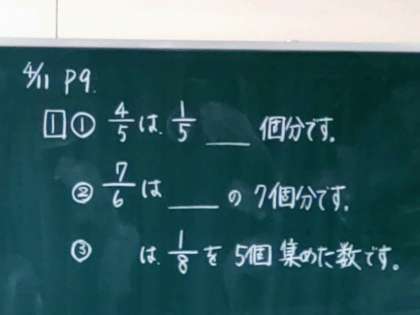 4/11 P9.
1 ① 4/5 は 1/5 ___ 個分です.
② 7/6 は ___ の 7個分です.
③ は 1/8 を 5個 集めた数です。